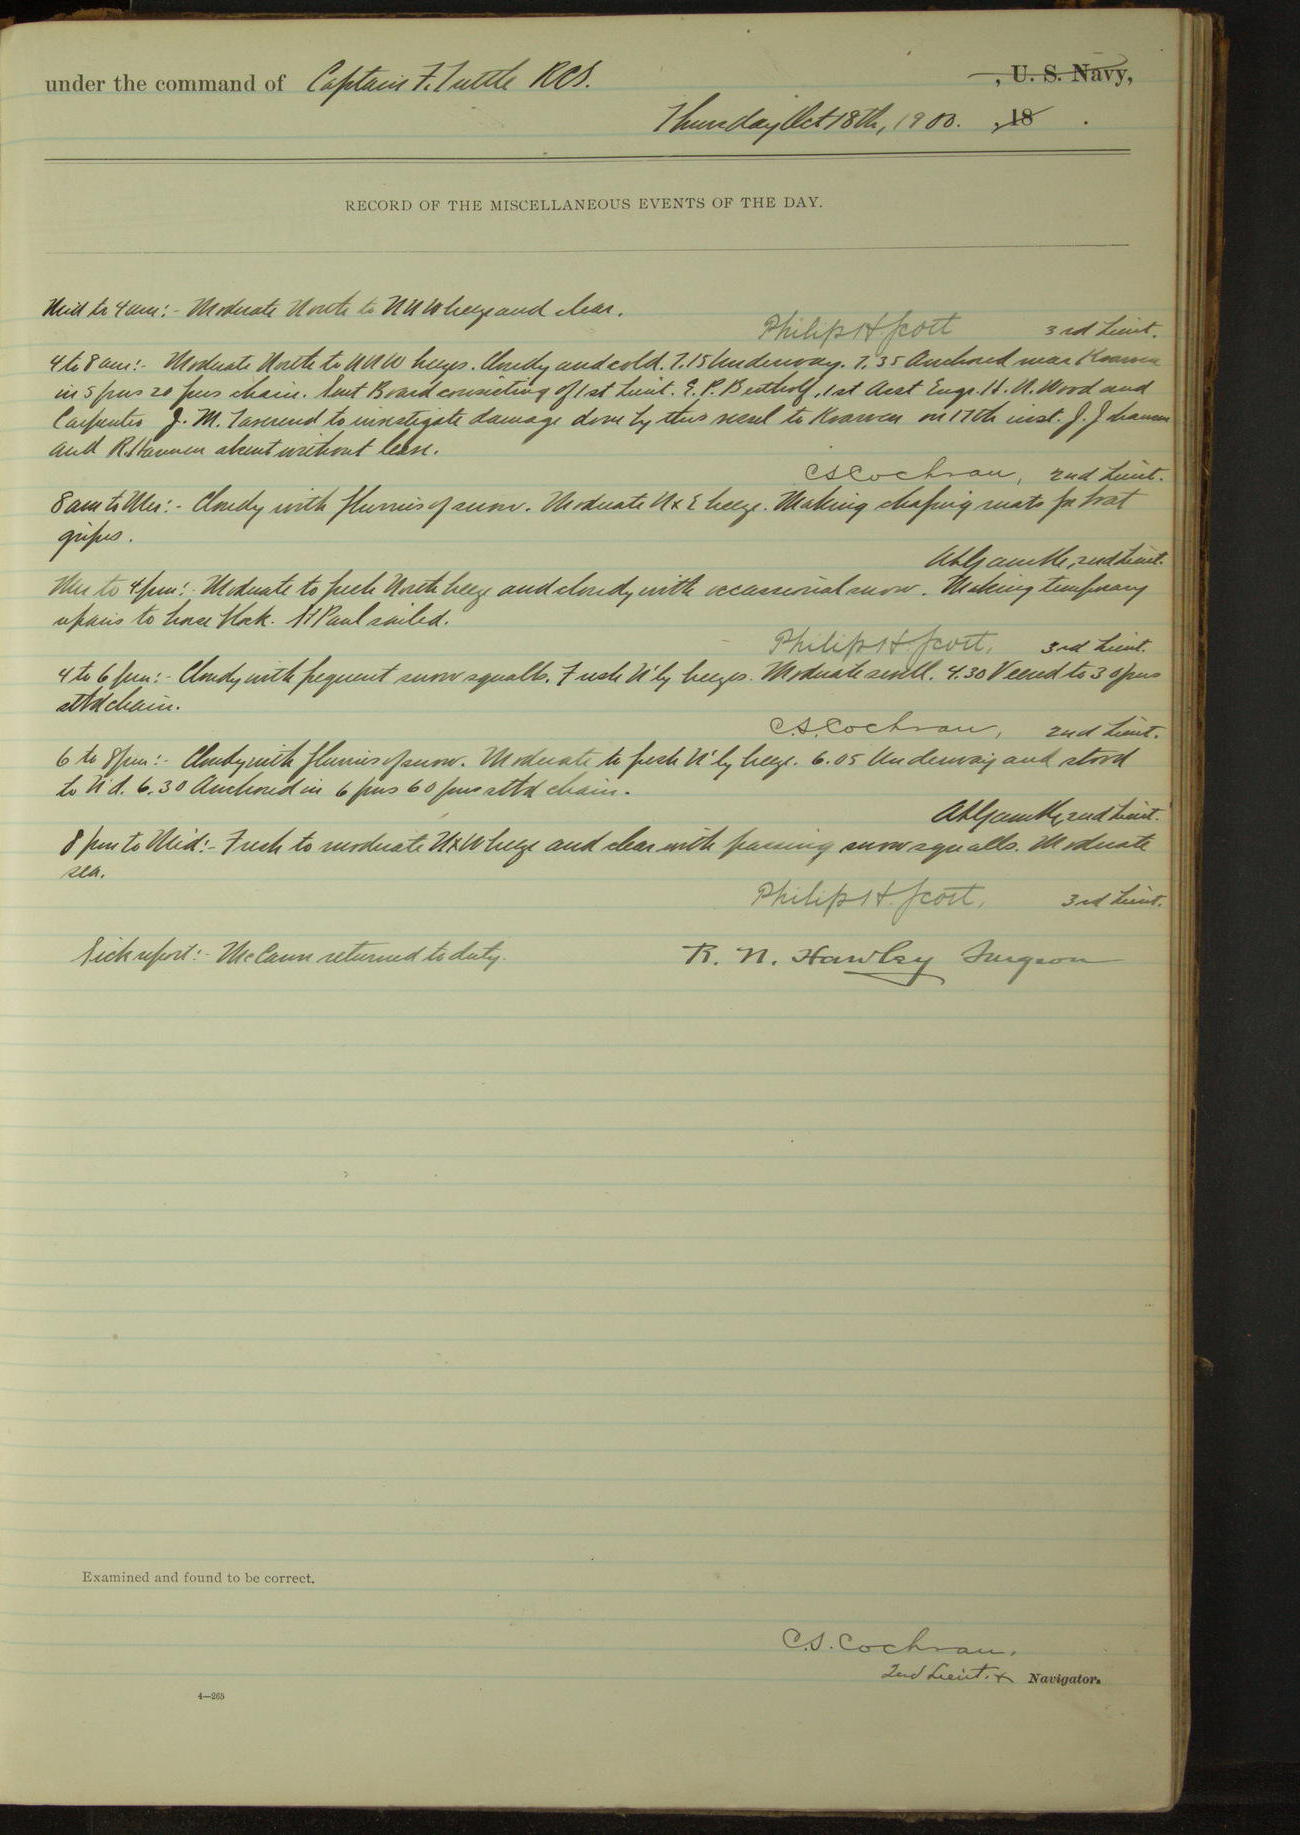 under the command of Captain F. Tuttle RCS. , U. S. Navy,
Thursday Oct 18th, 1900. , 18 .
RECORD OF THE MISCELLANEOUS EVENTS OF THE DAY.
Mid to 4 am:- Moderate North to NNW breeze and clear.
Philip H Scott 3rd Lieut.
4 to 8 am:- Moderate North to NNW breeze. Cloudy and cold. 7.15 Underway. 7.35 Anchored near
in 5 fms 20 fms chain. Sent Board consisting of 1st Lieut. E. P. Bertholf, 1st Asst Engr. H. N. Wood and
Carpenter J. M. to investigate damage done by this vessel to on 17th inst. J.
and R. Hannen absent without leave.
C S Cochran, 2nd Lieut.
8 am to Mer:- Cloudy with flurries of snow. Moderate NxE breeze. Making chafing mats for boat
gripes.
A H Gamble, 2nd Lieut.
Mer to 4 pm:- Moderate to fresh North breeze and cloudy with occassional snow. Making temporary
repairs to hose Hock. St Paul sailed.
Philip H. Scott, 3rd Lieut.
4 to 6 pm:- Cloudy with frequent snow squalls. Fresh N'ly breezes. Moderate swell. 4.30 Veered to 30 fms
stbd chain.
C.S. Cochran, 2nd Lieut.
6 to 8 pm:- Cloudy with flurries of snow. Moderate to fresh N'ly breeze. 6.05 Underway and stood
to N'd. 6.30 Anchored in 6 fms 60 fms stbd chain.
A H Gamble, 2nd Lieut.
8 pm to Mid:- Fresh to moderate NxW breeze and clear with passing snow squalls. Moderate
sea.
Philip H. Scott, 3rd Lieut.
Sick report:- McCann returned to duty. R. N. Hawley Surgeon
Examined and found to be correct.
C.S. Cochran,
2nd Lieut. + Navigator.
4—265